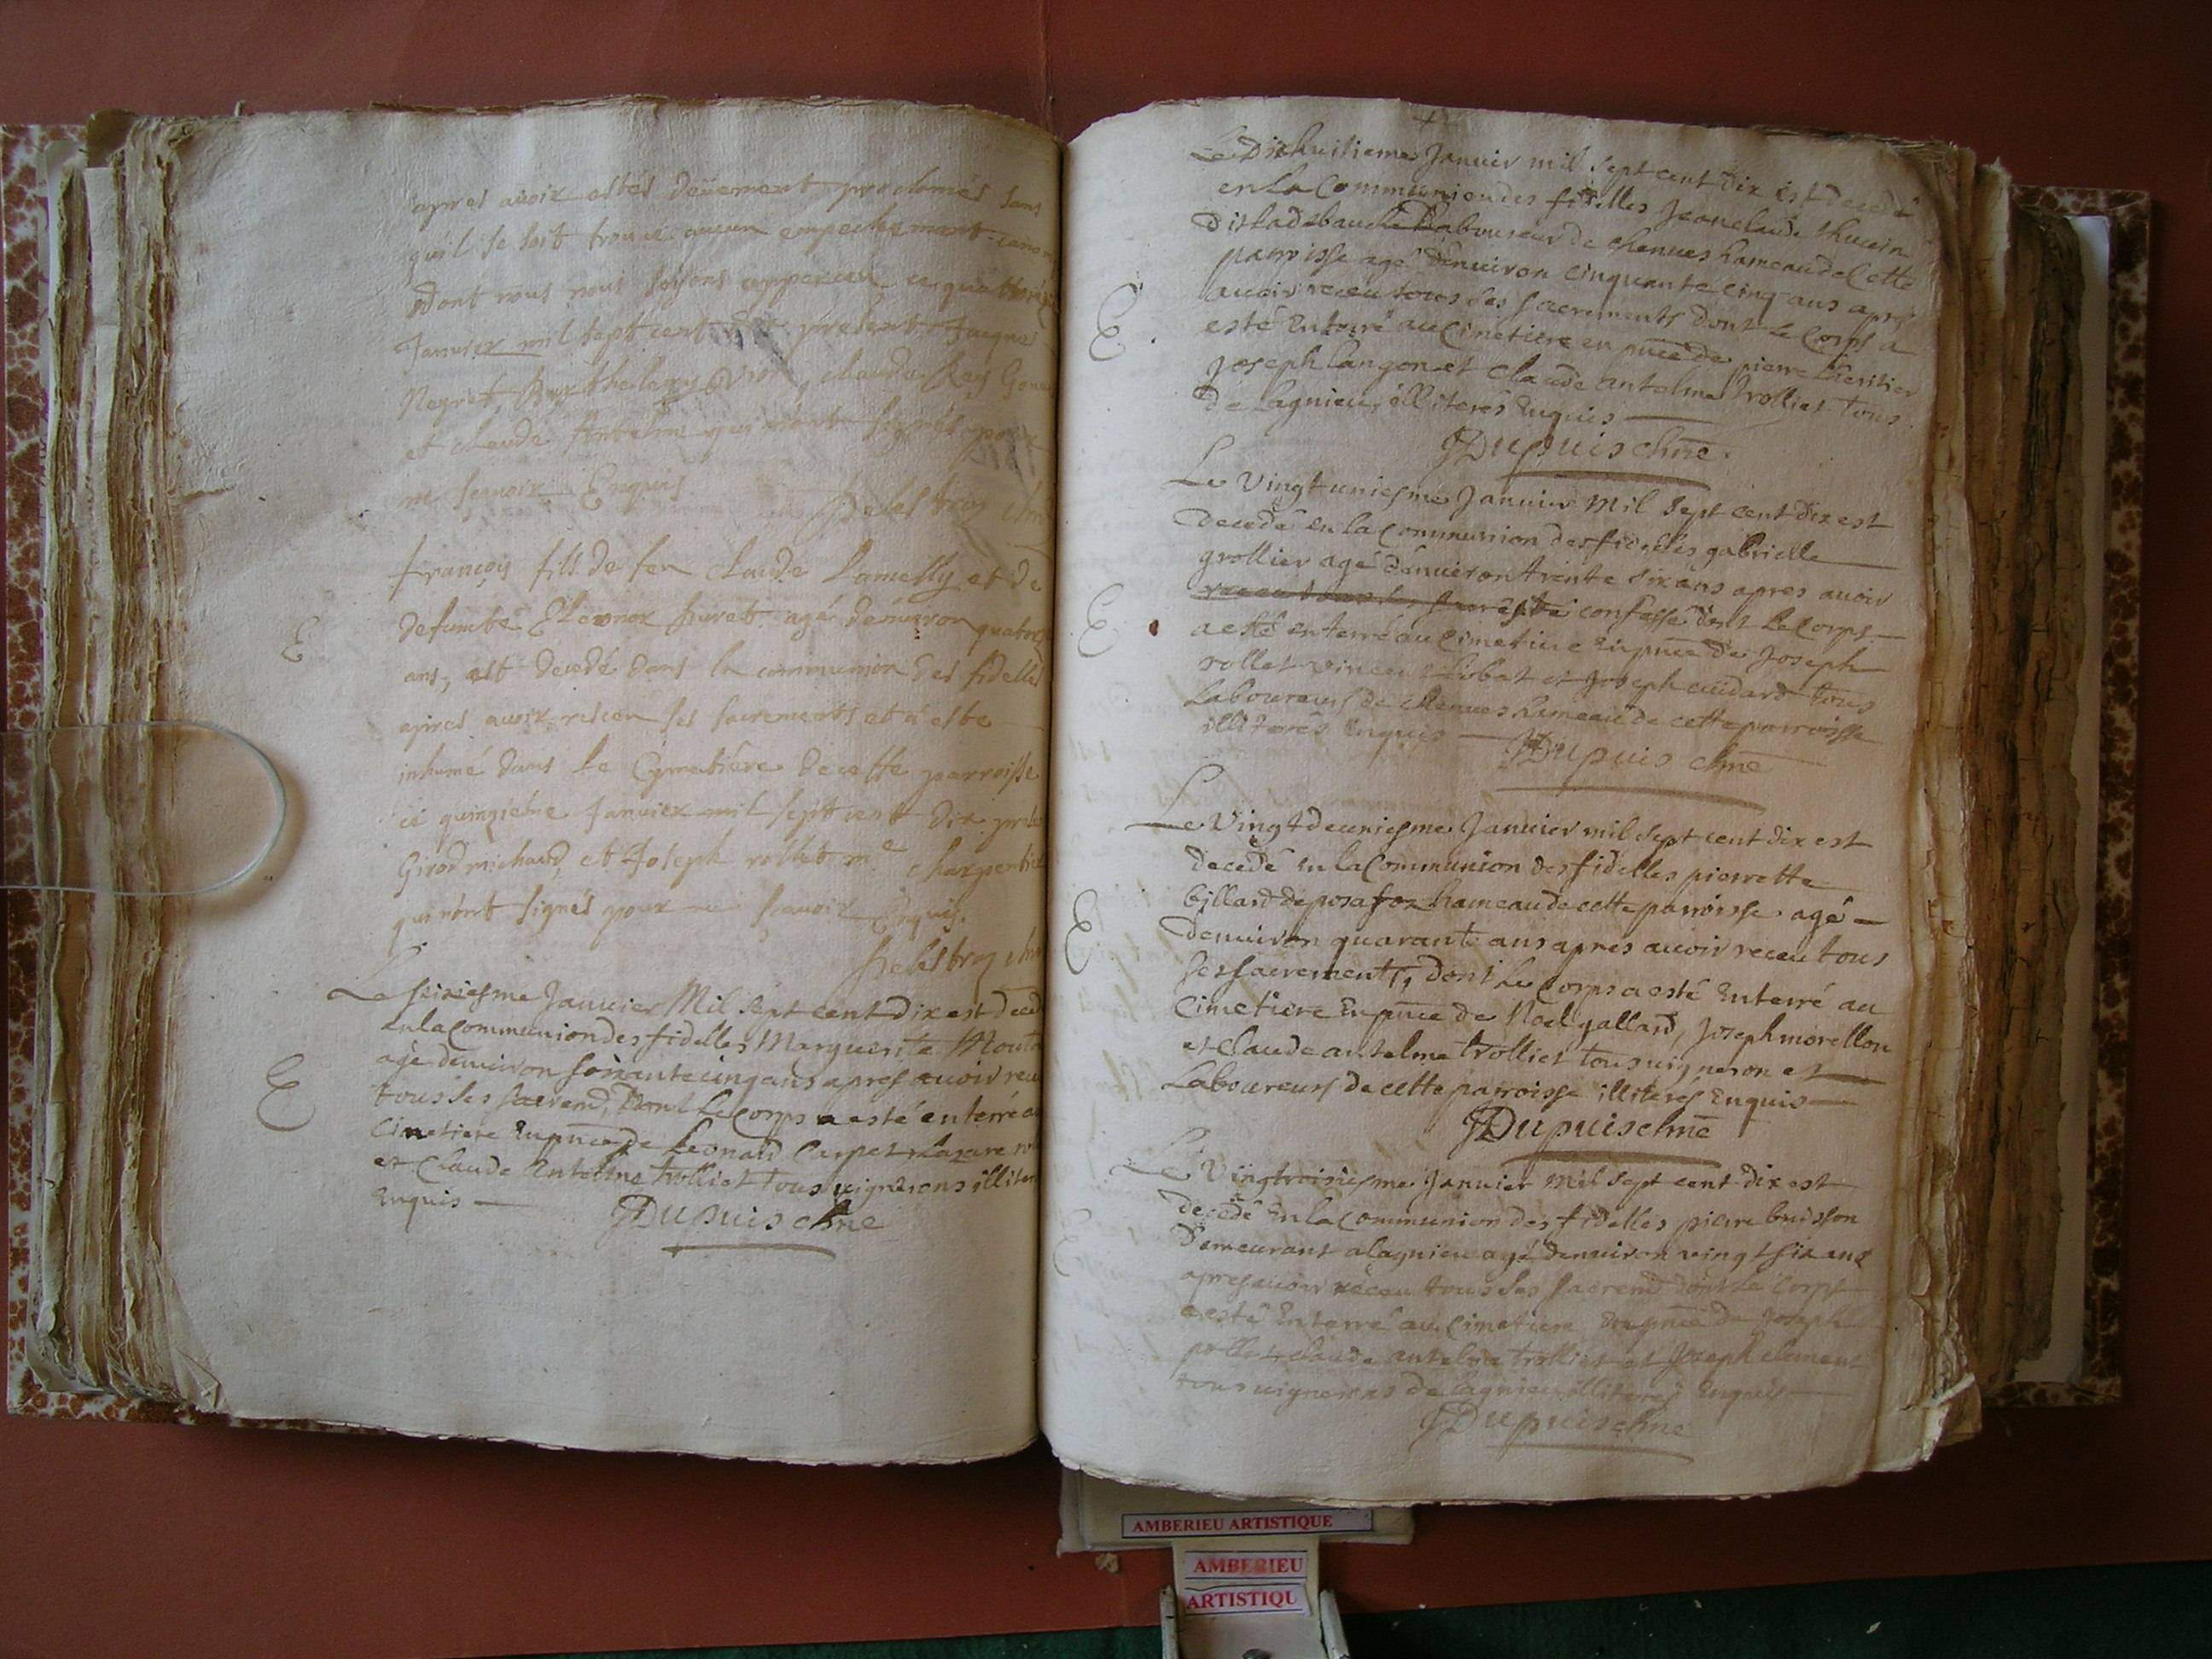 apres avoir estés deüement proclamés sans
qu'il se soit trouvé aucun empechemant
dont nous nous soyons apperceu ce
Janvier mil sept cent dix present Jacque
Negret, claude
et claude Antelme qui n'ont signés pour
ne scavoir Enquis
françois fils de feu claude et de
defuncte Eleonor agé d'enviró
ans, est decedé dans la communion des fidelles
apres avoir receu ses sacrements et a este
inhumé dans le Cymetière de cette parroisse
ce quinzieme Janvier mil sept cent dix
Girod michaud, et Joseph rollet me charpentier
qui n'ont signés pour ne scavoir Enquis.
Le seiziesme Janvier Mil sept cent dix est
En la Communion des fidelles Marguerite
agé denviron soixante cinq ans apres avoir
tous ses sacremts, Dont Le Corps a esté enterré
Cimetiere En pnce de Leonard Carpet Lazare
et Claude Entelme trolliet tous vignerons
Enquis
JDupuis chne
Le Dixhuitieme Janvier mil sept cent dix est decedé
en la Communion des fidelles Jean claude
dit Ladebauche Laboureur de chenues hameau de Cette
parroisse agé d'enuiron cinquante cinq ans apres
auoir receu tous ses sacrements dont le Corps a
esté Enterré au Cimetiere en pnce de pierre
Joseph langon et Claude antelme trolliet tous
de Lagnieu illiterés Enquis
JDupuis chne.
Le Vingt uniesme Januier Mil sept cent dix est
decedé en la Communion des fidelles gabrielle
grollier agé d'enuiron trente six ans apres auoir
confessé dont Le Corps
a esté enterré au Cimetiere En pnce de Joseph
rollet et Joseph tous
Laboureurs de chenues hameau de cette parroisse
illiterés Enquis
JDupuis chne
Le Vingt deuxiesme Januier mil sept cent dix est
decedé En la Communion des fidelles pierrette
billard de posafoz hameau de cette parroisse agé
denuiron quarante ans apres auoir receu tous
ses sacrements, dont Le Corps a esté Enterré au
Cimetiere En pnce de Noel gallard, Joseph morellon
et Claude antelme trolliet tous vigneron et
Laboureurs de cette parroisse illiterés Enquis
JDupuis chne
Le Vingtroisiesme Januier Mil sept cent dix est
decedé En la Communion des fidelles pierre buisson
demeurant a lagnieu agé denuiron vingt six ans
apres auoir receu tous ses sacremts dont Le Corps
a esté Enterré au Cimetiere En pnce de Joseph
claude antelme trolliet et Joseph clement
tous vignerons de lagnieu illiterés Enquis
JDupuis chne
AMBERIEU ARTISTIQUE
AMBERIEU
ARTISTIQU